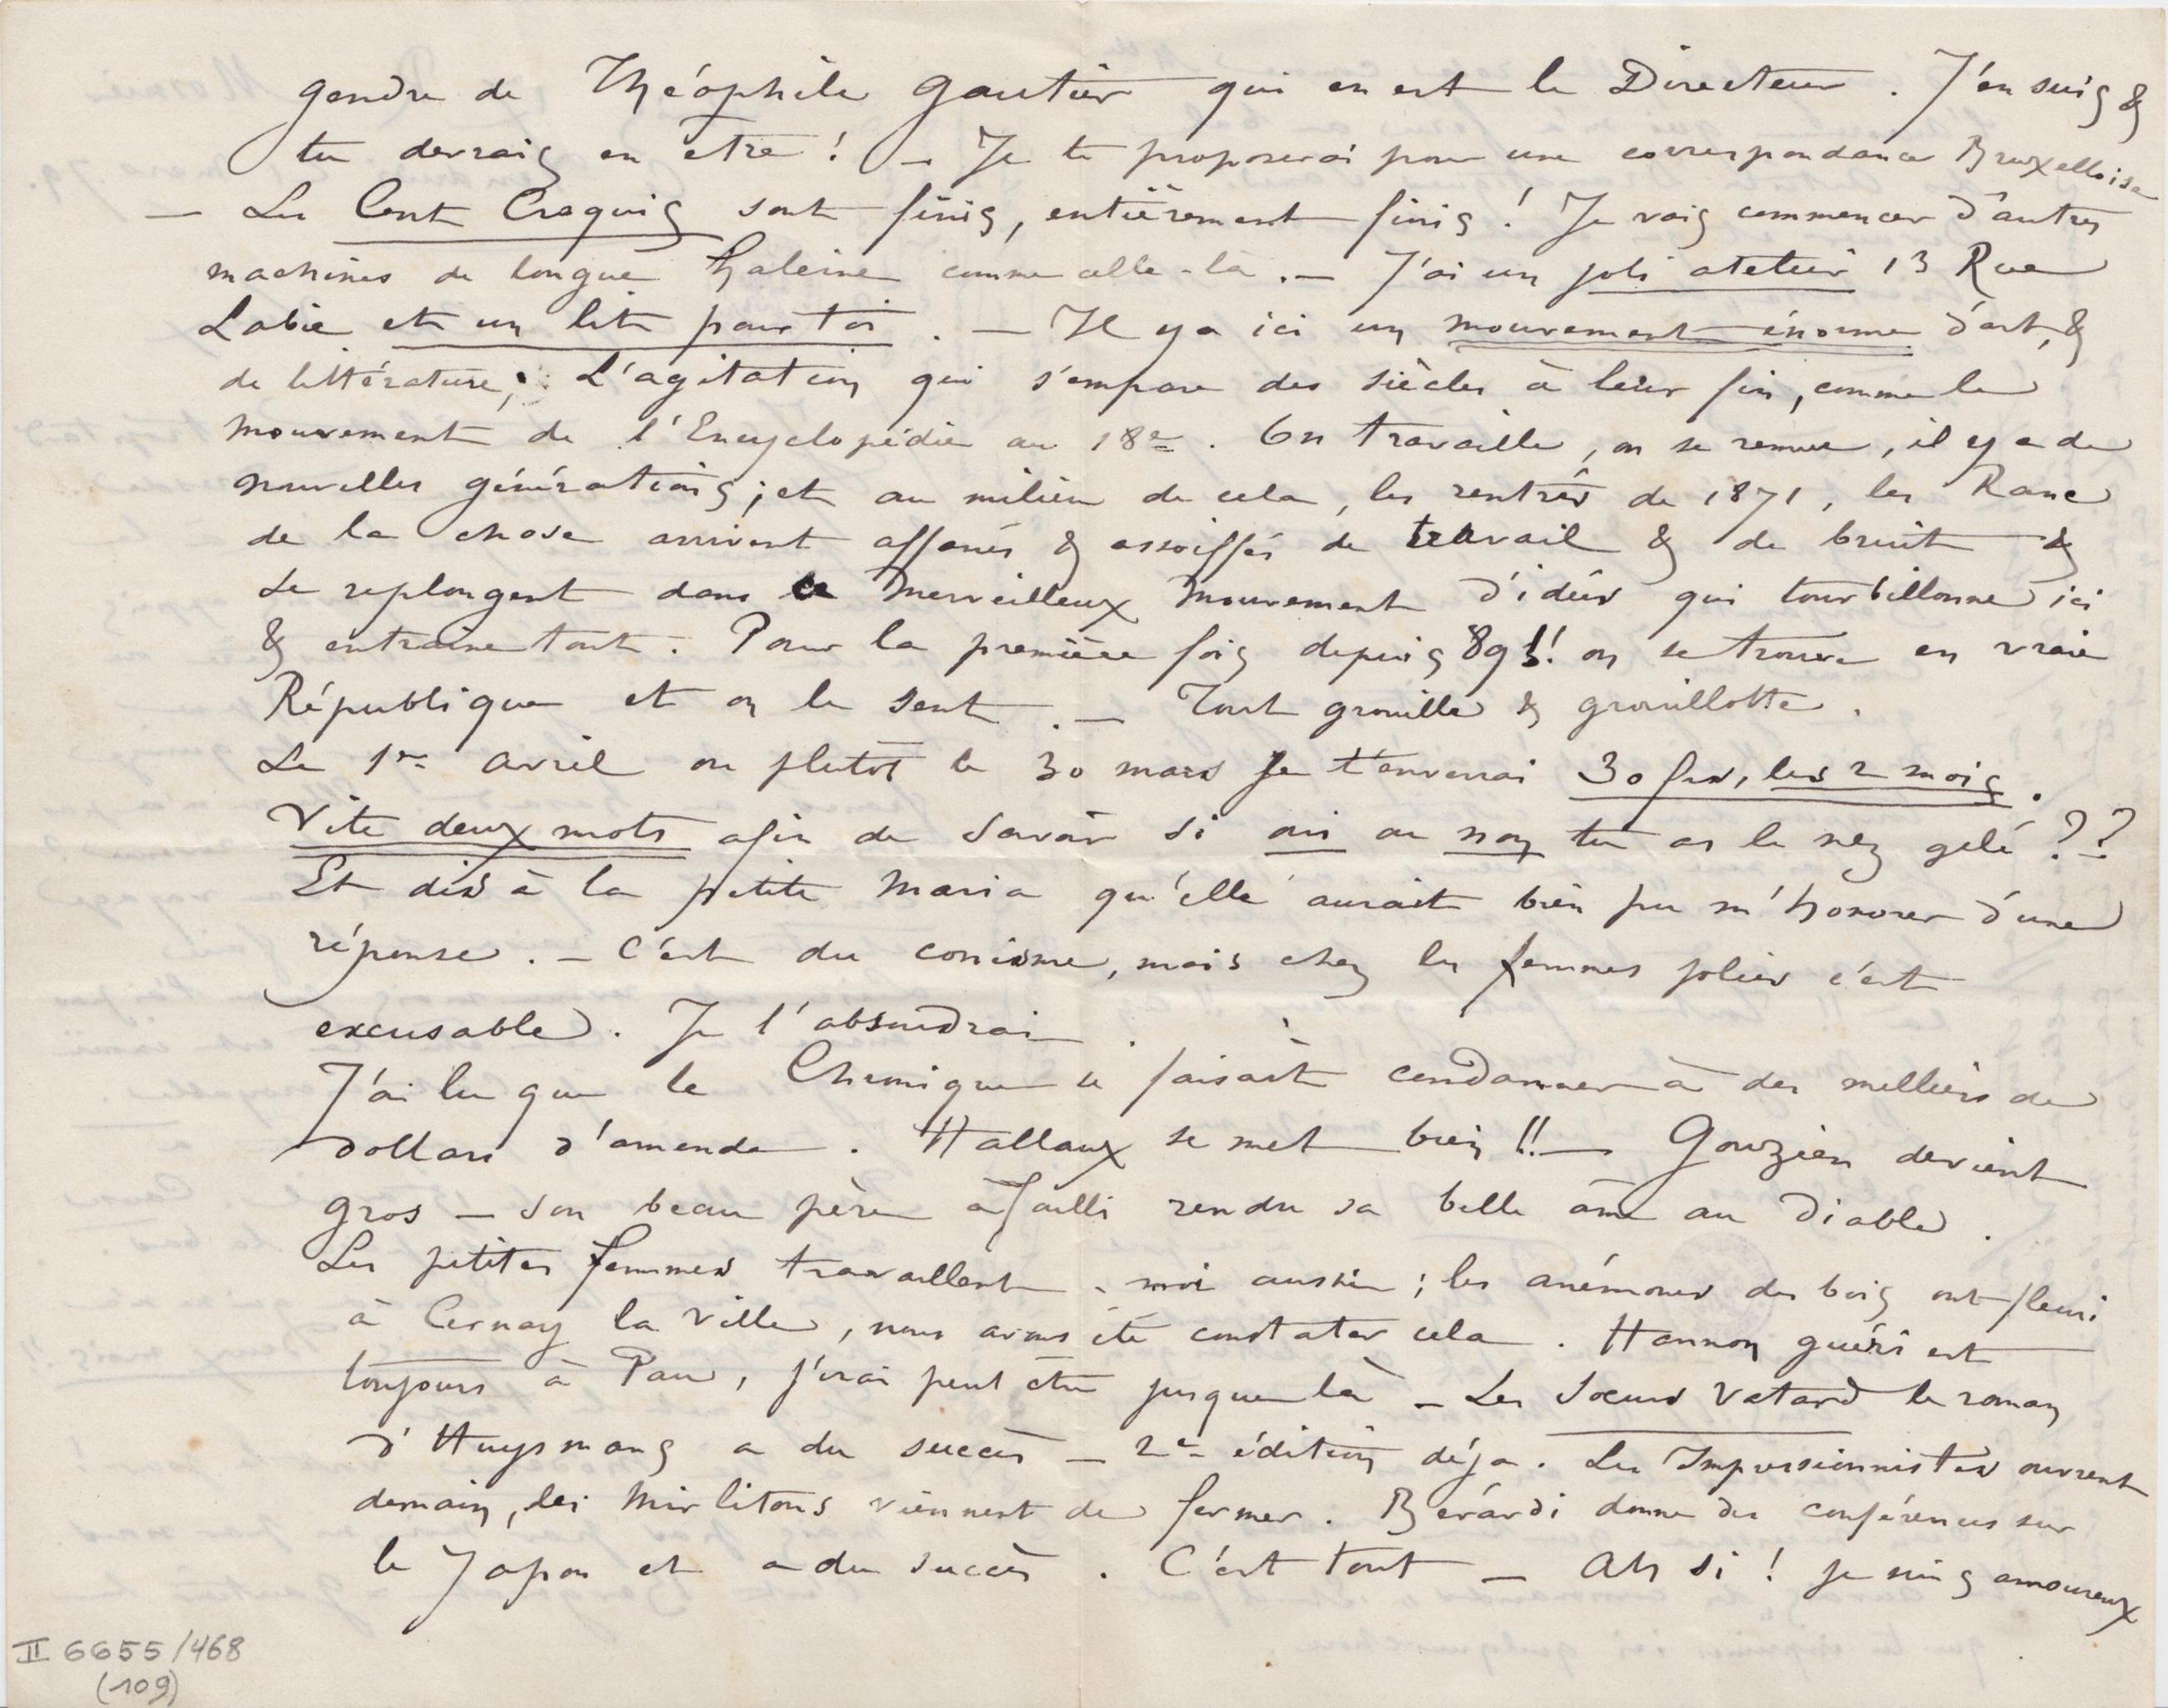 gendre de Théophile Gautier qui en est le Directeur. J'en suis &
tu devrais en être ! — Je te proposerai pour une correspondance Bruxelloise
— Les Cent Croquis sont finis, entièrement finis ! Je vais commencer d'autres
machines de longue haleine comme celle-là. — J'ai un joli atelier 13 Rue
Labie et un lit pour toi. — Il y a ici un mouvement énorme d'art, &
de littérature; L'agitation qui s'empare des siècles à leur fin, comme le
mouvement de l'Encyclopédie au 18e. On travaille, on se remue, il y a de
nouvelles générations; et au milieu de cela, les rentrés de 1871, les Ranc
de la chose arrivent affamés & assoiffés de travail & de bruit &
se replongent dans ce merveilleux mouvement d'idées qui tourbillonne ici
& entraine tout. Pour la première fois depuis 89 !! on se trouve en vraie
République et on le sent. — Tout grouille & grouillotte.
Le 1er avril ou plutôt le 30 mars je t'enverrai 30 frs, les 2 mois.
Vite deux mots afin de savoir si oui ou non tu as le nez gelé ??
Et dis à la petite Maria qu'elle aurait bien pu m'honorer d'une
réponse. — C'est du conisme, mais chez les femmes jolies c'est
excusable. Je l'absoudrai.
J'ai lu que le Chronique se faisait condamner à des milliers de
dollars d'amende. Hallaux se met bien !! — Gouzien devient
gros — son beau père a failli rendre sa belle âme au Diable.
Les petites femmes travaillent, moi aussi; les anémones des bois ont fleuri
à Cernay la Ville, nous avons été constater cela. Hannon guéri est
toujours à Pau, j'irai peut être jusque là — Les Soeurs Vatard le roman
d'Huysmans a du succès — 2e édition déja. Les Impressionnistes ouvrent
demain, les Mirlitons viennent de fermer. Berárdi donne des conférences sur
le Japon et a du succès. C'est tout — Ah si ! je suis amoureux
II 6655/468
(109)